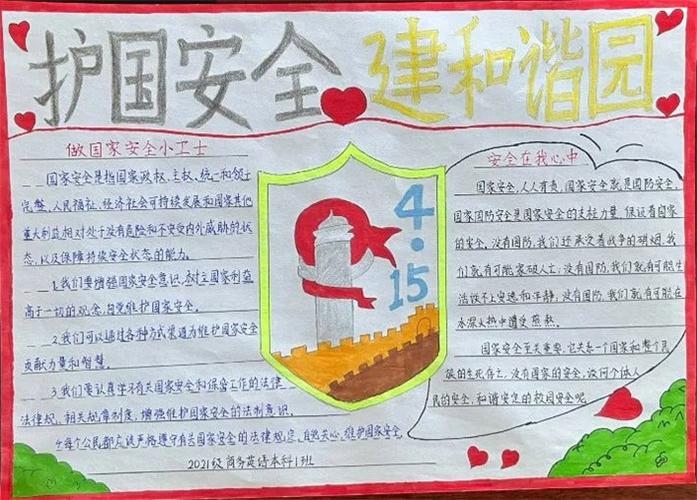 护国安全 建和谐园
做国家安全小卫士
国家安全是指国家政权、主权、统一和领土
完整、人民福祉、经济社会可持续发展和国家其他
重大利益相对处于没有危险和不受内外威胁的状
态,以及保障持续安全状态的能力。
1.我们要增强国家安全意识,树立国家利益
高于一切的观念,自觉维护国家安全。
2.我们可以通过各种方式渠道为维护国家安全
贡献力量和智慧。
3.我们要认真学习有关国家安全和保密工作的法律
法规、相关规章制度,增强维护国家安全的法制意识。
4.每个公民都应该严格遵守有关国家安全的法律规定,自觉关心、维护国家安全
2021级商务英语本科1班
4·15
安全在我心中
国家安全,人人有责,国家安全就是国防安全,
国家国防安全是国家安全的支柱力量,保证着国家
的安全,没有国防,我们还承受着战争的硝烟,我
们就有可能家破人亡;没有国防,我们就有可能生
活状不上安逸和平静;没有国防,我们就有可能在
水深火热中遭受煎熬。
国家安全至关重要,它关系一个国家和整个民
族的生死存亡,没有国家的安全,谈何个体人
民的安全,和谐安定的校园安全呢